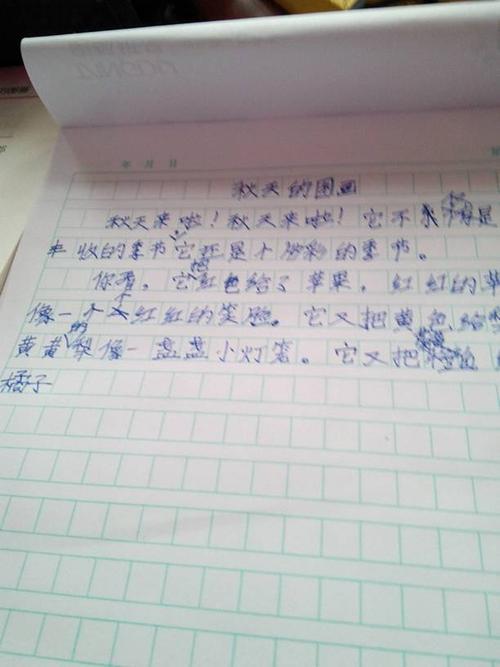 年 月 日
秋天的图画
秋天来啦！秋天来啦！它不是
丰收的季节，它还是个多彩的季节。
你看，它把红色给了苹果，红红的苹
像一个个红红的笑脸。它又把黄色给
黄黄的梨像一盏盏小灯笼。它又把
橘子